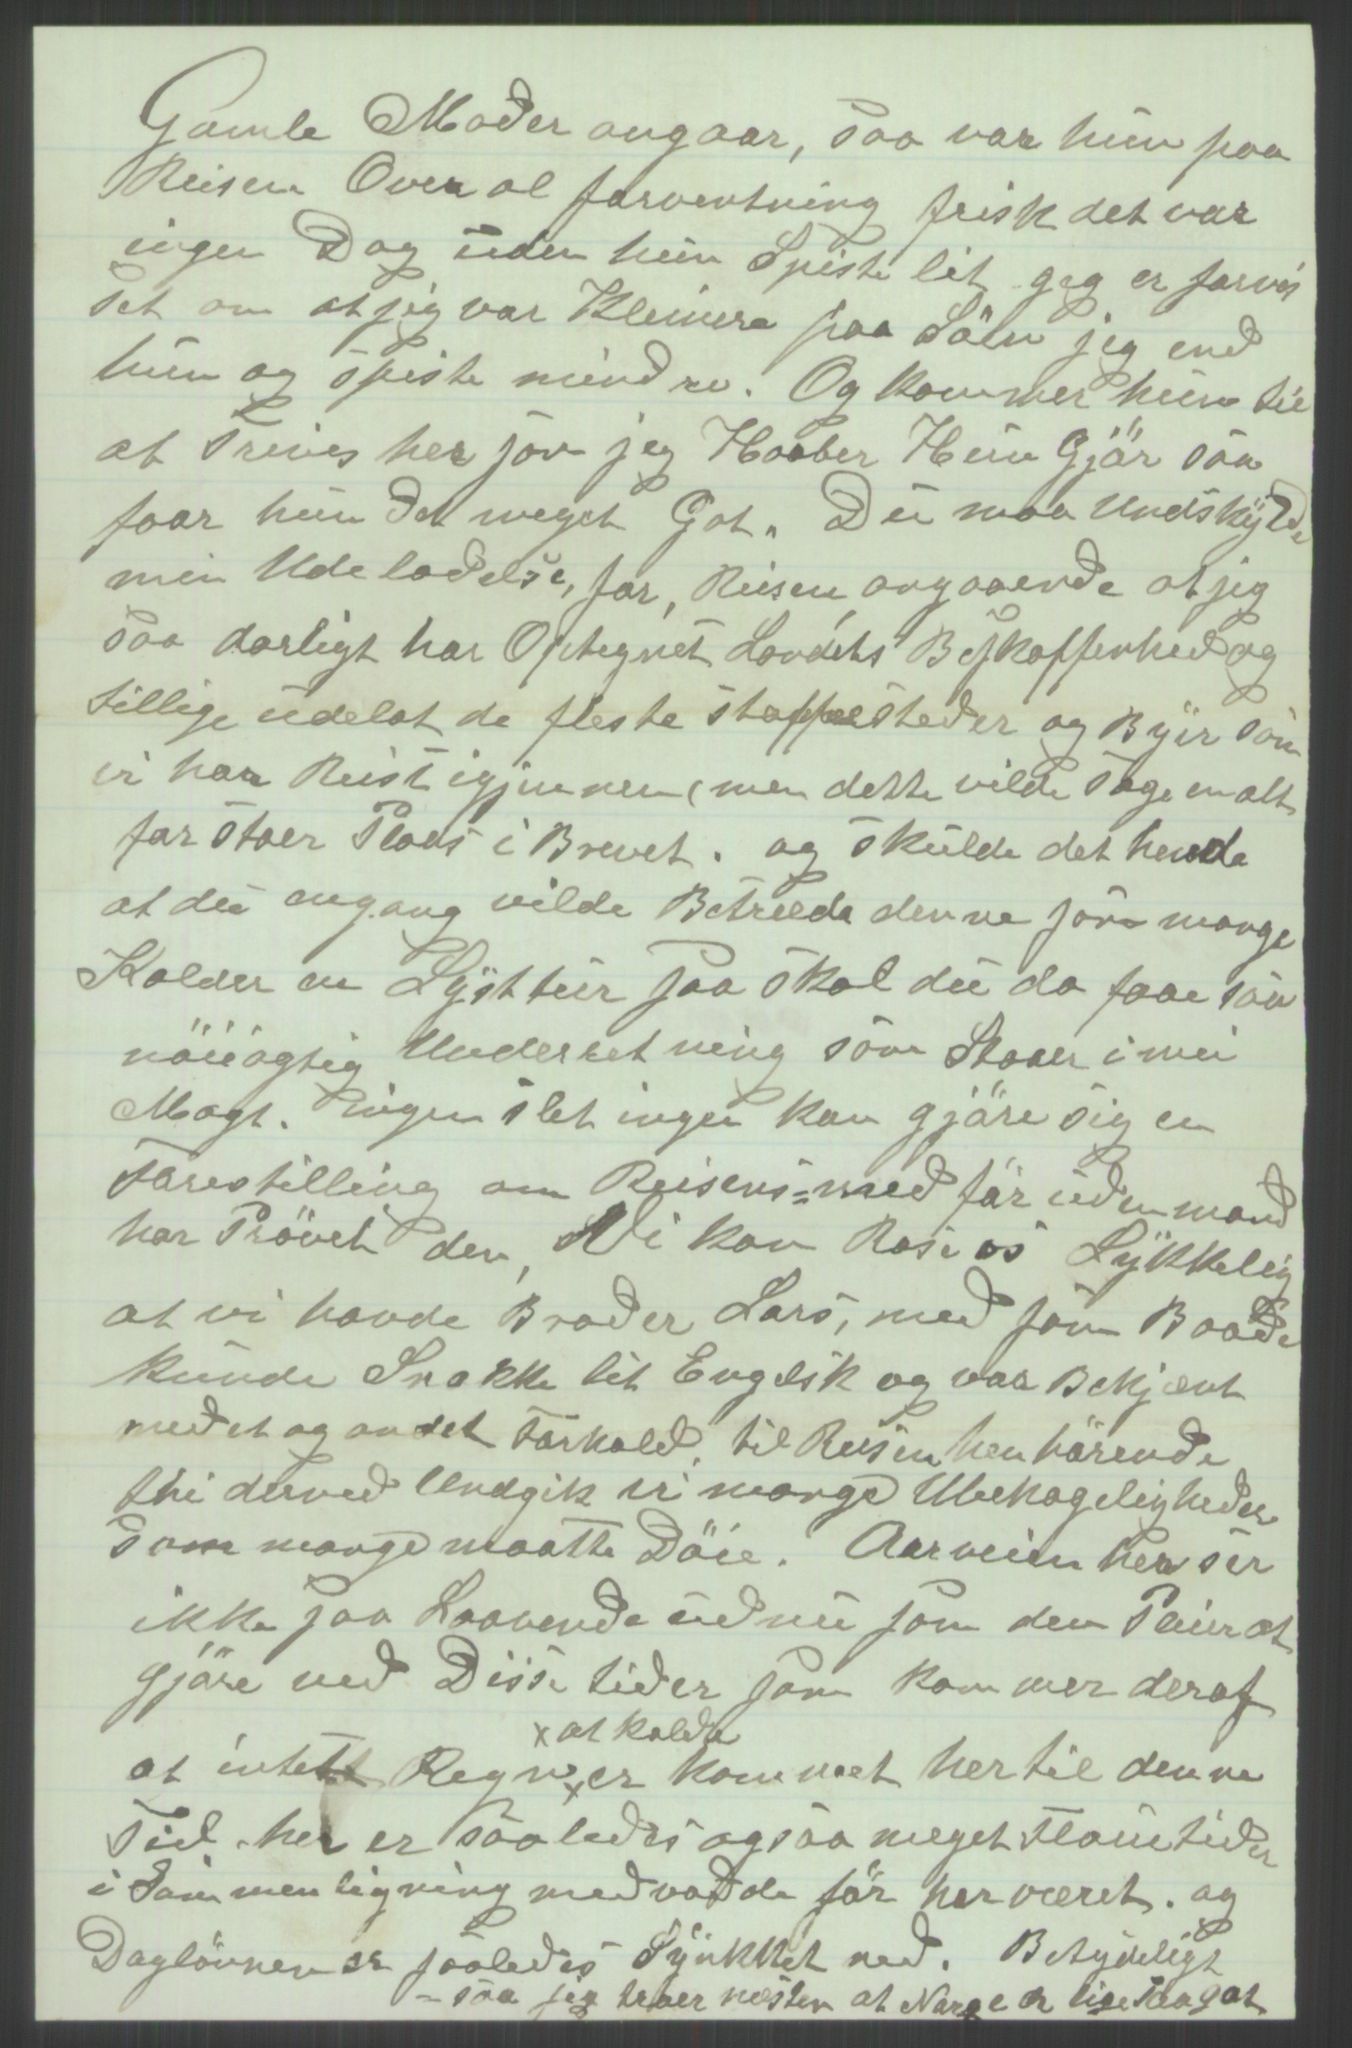 Gamle Moder angaar, saa var hun paa
Reisen Over al forventning frisk det var
ingen Dag uden hun Spiste lit jeg er forvis
set om at jeg var Kleinere paa Söen jeg end
hun og spiste mindre. Og kommer hun til
at Trives her som jeg Haaber Hun Gjör saa
faar hun det meget Got. Du maa Undskylde
min Udeladelse, for, Reisen angaaende at jeg
saa darligt har Optegnet Landets Beskaffenhed og
tillige udelat de fleste stoppesteder og Byer som
vi har Reist igjennem, men dette vilde tage en alt
for stoer Plads i Brevet. og skulde det hende
at du engang vilde Betræde denne som mange
Kalder en Lysttur saa skal du da faae saa
nöiiagtig Underretning som Staaer i min
Magt. Ingen slet ingen kan gjöre sig en
Forestilling om Reisens = med för uden mand
har Prövet den, Vi kan Rose os Lykkelig
at vi havde Broder Lars, med som Baade
kunde Snakke lit Engelsk og var Bekjent
med et og andet Forhold, til Reisen henhörende
thi derved Undgik vi mange Ubehageligheder
som mange maatte Döie. Aarveien her ser
ikke saa Lovende ud nu som den Pleier at
gjöre ved Disse tider som kommer deraf
x at kalde
at intet Regn x er kommet her til denne
Tid. her er saaledes ogsaa meget Flaue tider
i Sammenligning med hvad de för her været. og
Daglönnen er saaledes Synkket ned. Betydeligt
= saa jeg troer næsten at Norge er lige saa got